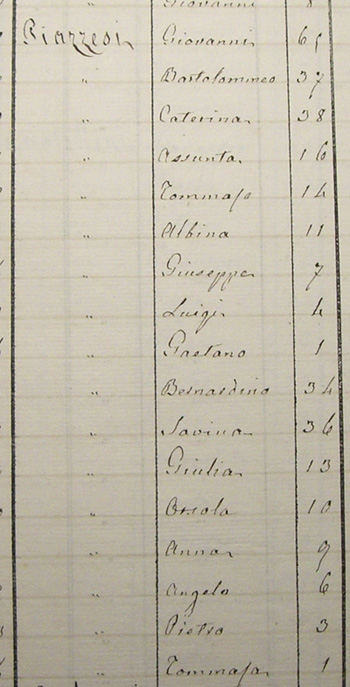 Giovanni 8
Piazzesi Giovanni 65
" Bartolommeo 37
" Caterina 38
" Assunta 16
" Tommaso 14
" Albina 11
" Giuseppe 7
" Luigi 4
" Gaetano 1
" Bernardino 34
" Savina 36
" Giulia 13
" Orsola 10
" Anna 9
" Angelo 6
" Pietro 3
" Tommasa 1